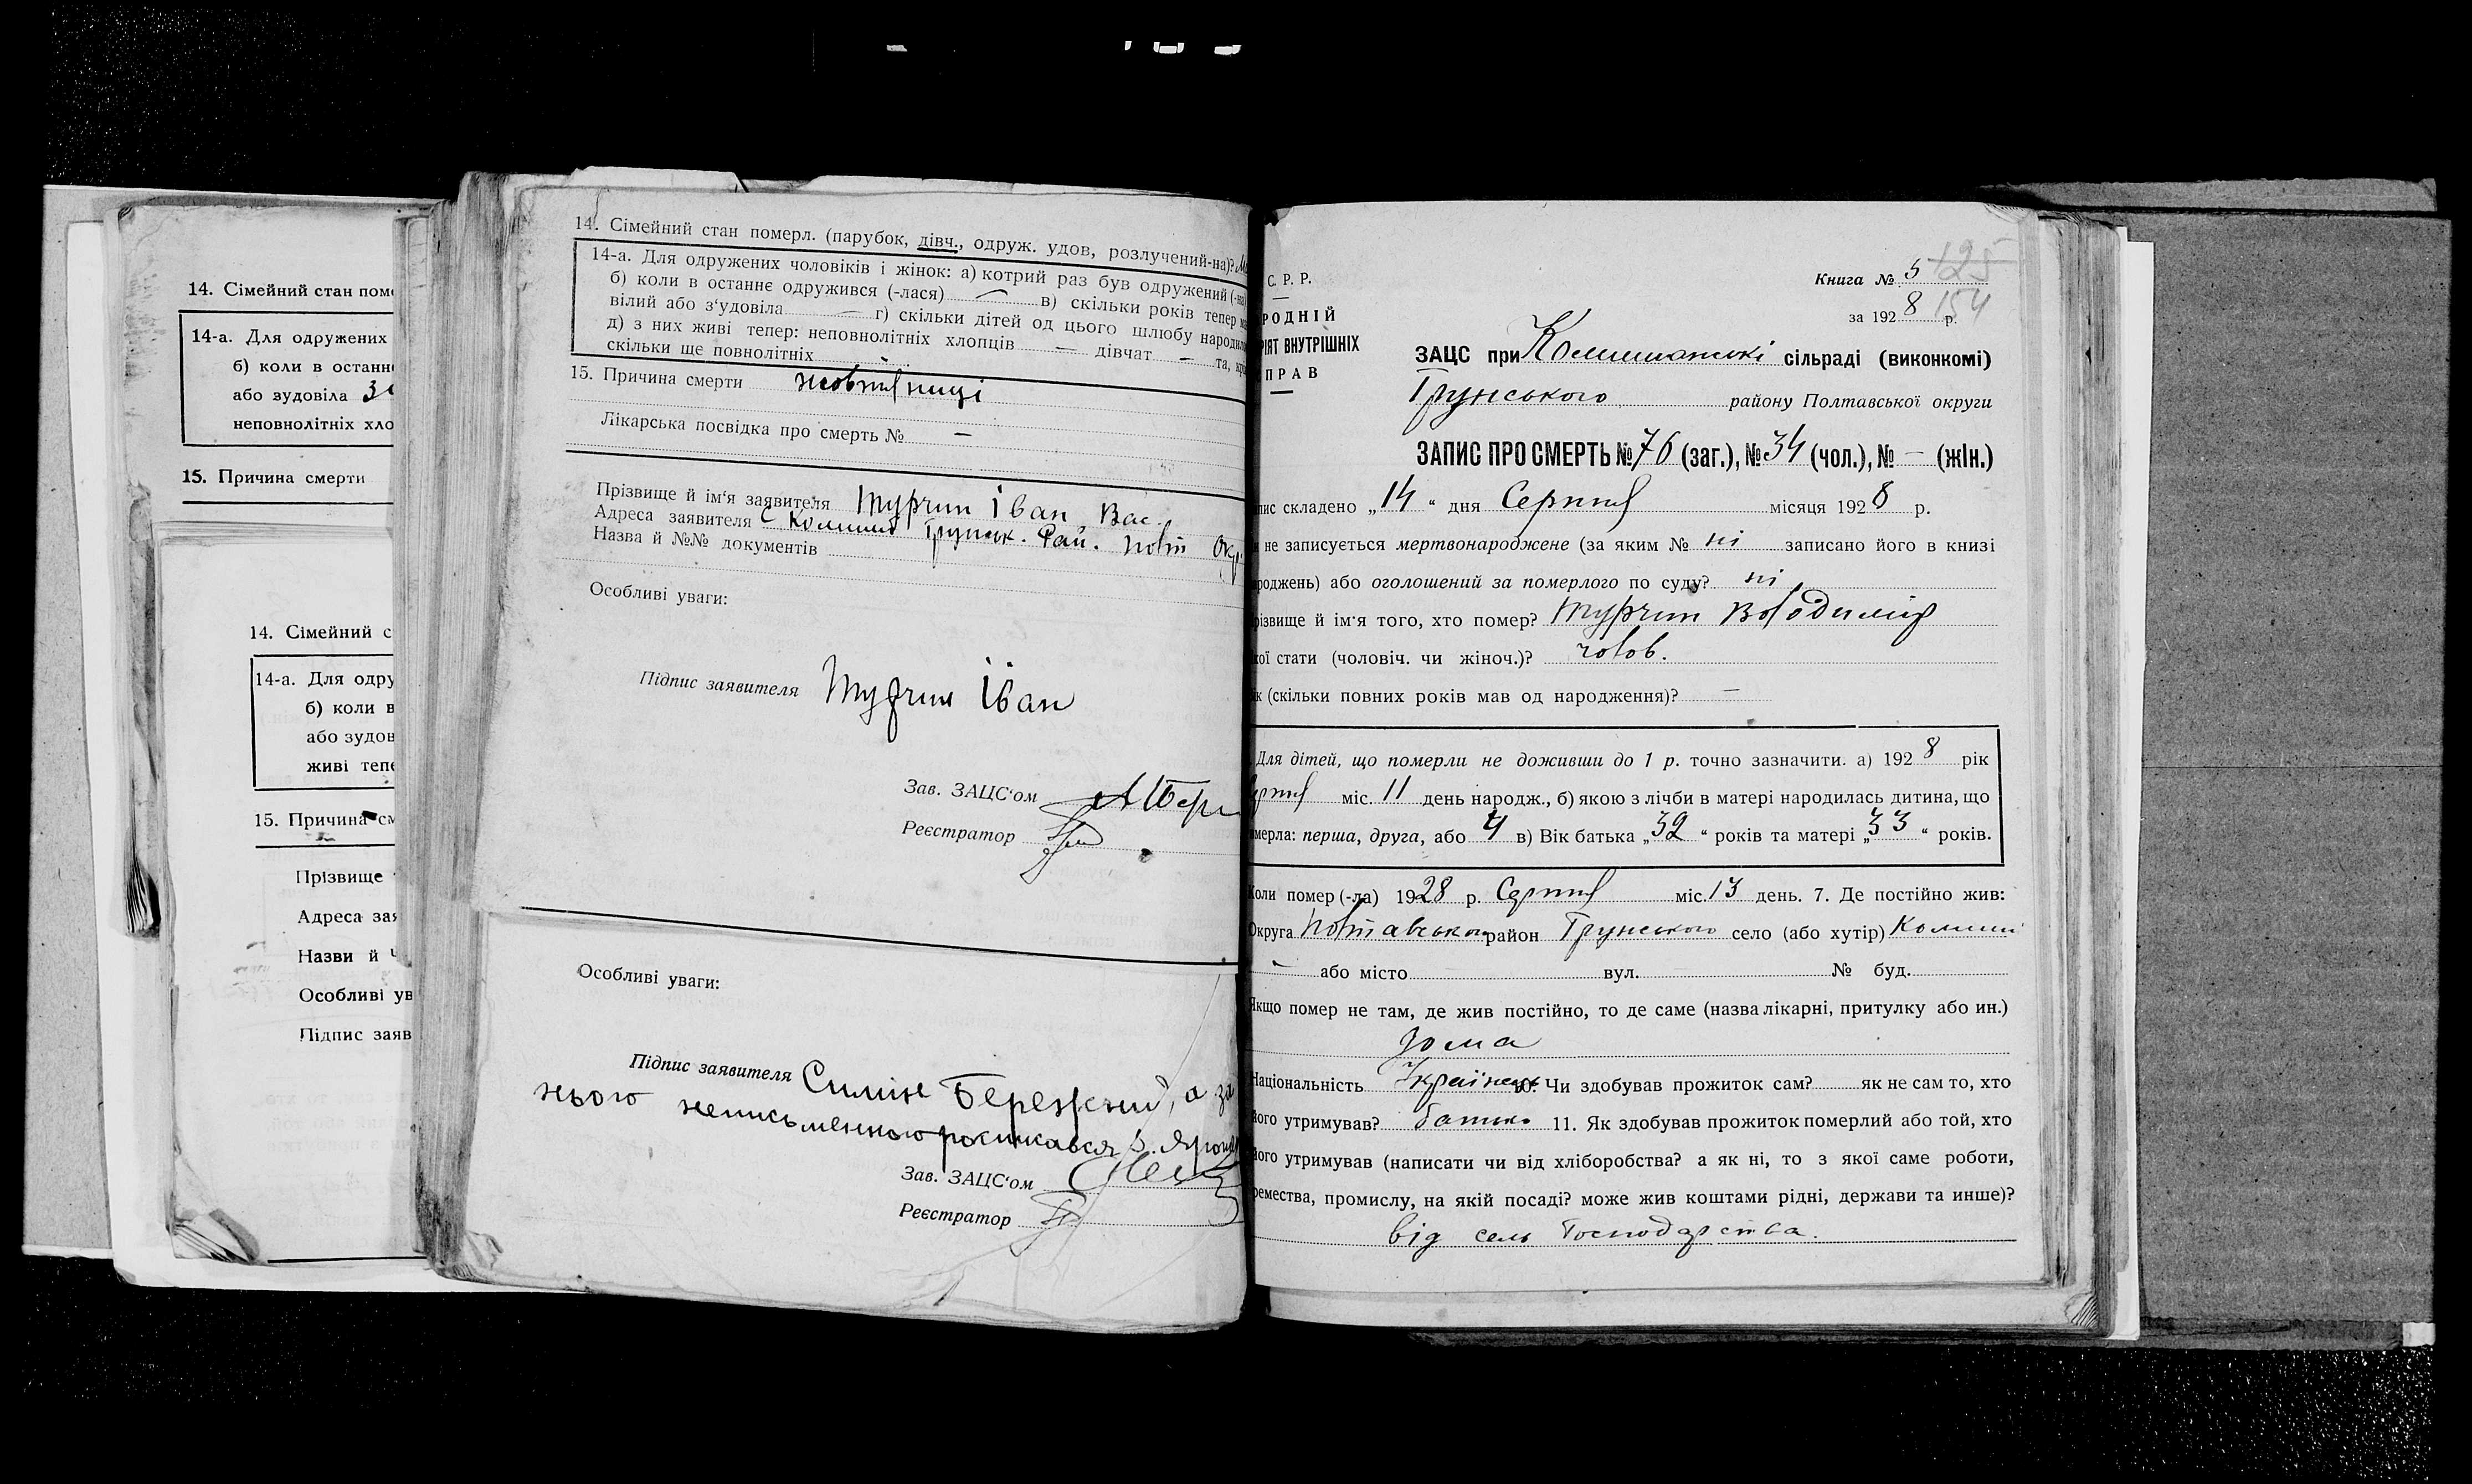 14. Сімейний стан пом
14-а. Для одружених
б) коли в останн
або зудовіла
неповнолітніх хло
15. Причина смерти
14. Сімейний с
14-а. Для одру
б) коли в
або зудов
живі тепе
15. Причина см
Прізвище
Адреса зая
Назви й
Особливі ув
Підпис заяв
14. Сімейний стан померл. (парубок, дівч., одруж. удов, розлучений-на)?
14-а. Для одружених чоловіків і жінок: а) котрий раз був одружений (-на)
б) коли в останнє одружився (-лася) — в) скільки років тепер
вілий або з'удовіла — г) скільки дітей од цього шлюбу народил
д) з них живі тепер: неповнолітніх хлопців — дівчат — та, крі
скільки ще повнолітніх
15. Причина смерти жовтяниці
Лікарська посвідка про смерть № —
Прізвище й ім'я заявителя Турчин Іван Вас.
Адреса заявителя С Комиші Грунськ. Рай. Полт Окр.
Назва й №№ документів
Особливі уваги:
Підпис заявителя Турчин Іван
Зав. ЗАЦС'ом
Реєстратор
Особливі уваги:
Підпис заявителя Силин Бережний, а за
нього неписьменного росписався
Зав. ЗАЦС'ом
Реєстратор
С. Р. Р.
РОДНІЙ
РІЯТ ВНУТРІШНІХ
ПРАВ
Книга № 5 125
за 1928 р. 154
ЗАЦС при Комишанські сільраді (виконкомі)
Грунського району Полтавської округи
ЗАПИС ПРО СМЕРТЬ № 76 (заг.), № 34 (чол.), № — (жін.)
пис складено „14“ дня Серпня місяця 1928 р.
не записується мертвонароджене (за яким № ні записано його в книзі
роджень) або оголошений за померлого по суду? ні
різвище й ім'я того, хто помер? Турчин Володимир
кої стати (чоловіч. чи жіноч.)? чолов.
ік (скільки повних років мав од народження)? —
Для дітей, що померли не доживши до 1 р. точно зазначити. а) 1928 рік
ерпня міс. 11 день народж., б) якою з лічби в матері народилась дитина, що
мерла: перша, друга, або 4 в) Вік батька „32“ років та матері „33“ років.
Коли помер (-ла) 1928 р. Серпня міс. 13 день. 7. Де постійно жив:
Округа Полтавського район Грунського село (або хутір) Комиші
або місто вул. № буд.
Якщо помер не там, де жив постійно, то де саме (назва лікарні, притулку або ин.)
Дома
Національність Українець 10. Чи здобував прожиток сам? як не сам то, хто
його утримував? батько 11. Як здобував прожиток померлий або той, хто
його утримував (написати чи від хліборобства? а як ні, то з якої саме роботи,
ремества, промислу, на якій посаді? може жив коштами рідні, держави та инше)?
від сель Господарства.